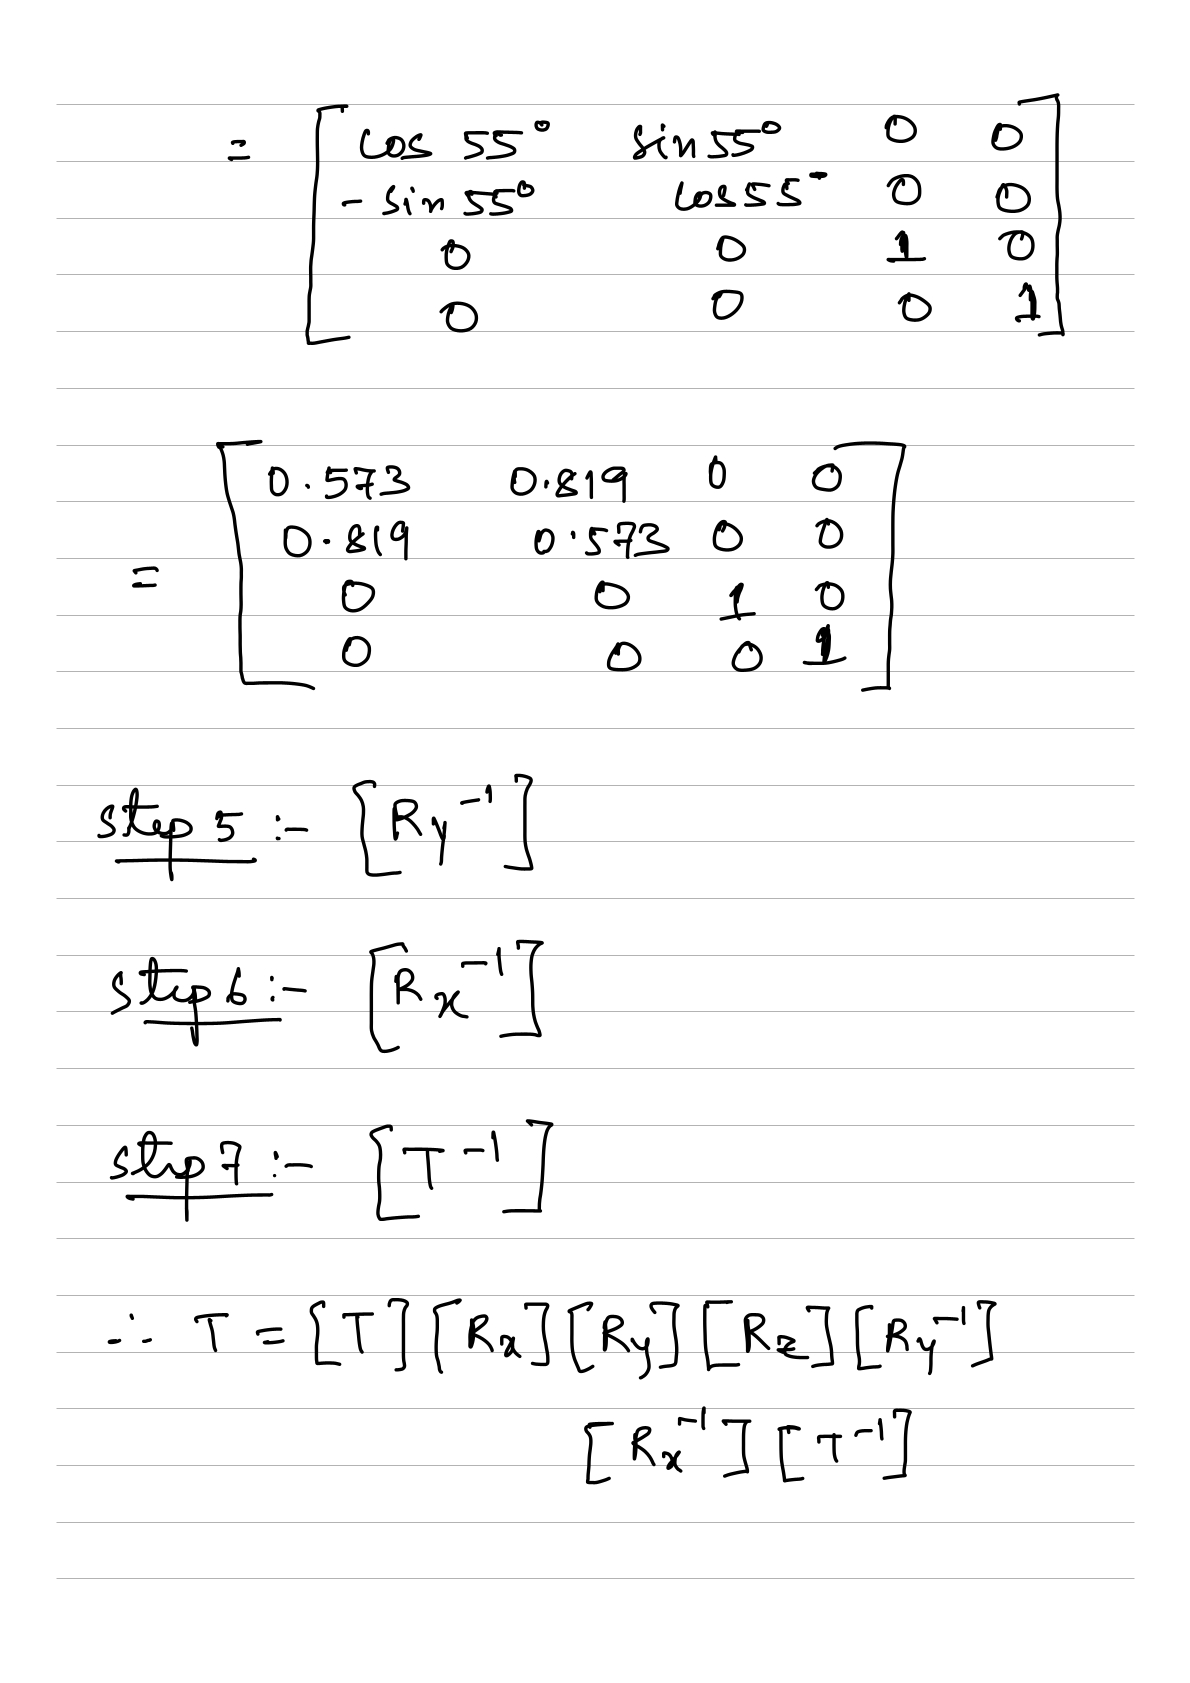 = [ cos 55° sin 55° 0 0
- sin 55° cos 55° 0 0
0 0 1 0
0 0 0 1 ]
= [ 0.573 0.819 0 0
0.819 0.573 0 0
0 0 1 0
0 0 0 1 ]
step 5 :- [Ry⁻¹]
step 6 :- [Rx⁻¹]
step 7 :- [T⁻¹]
∴ T = [T] [Rx] [Ry] [Rz] [Ry⁻¹]
[Rx⁻¹] [T⁻¹]